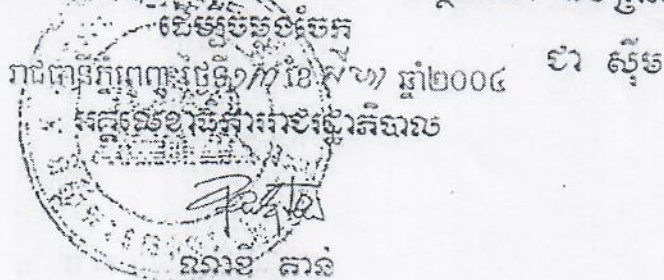 ដើម្បីចម្លងចែក
រាជធានីភ្នំពេញ ថ្ងៃទី ខែ ឆ្នាំ២០០៤
ជា ស៊ីម
អគ្គលេខាធិការរាជរដ្ឋាភិបាល
ណាឌី តាន់